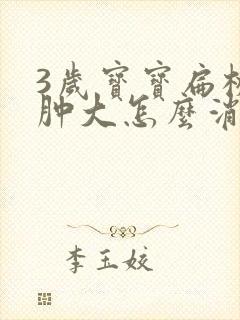 3歲寶寶扁桃
肿大怎麼消
李玉姣